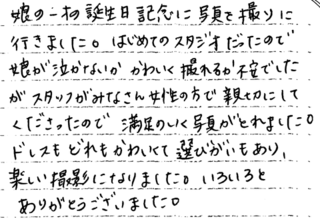 娘の一才の誕生日記念に写真を撮りに
行きました。はじめてのスタジオだったので
娘が泣かないか かわいく撮れるか不安でした
が スタッフがみなさん女性の方で 親切にして
くださったので 満足のいく写真がとれました。
ドレスも どれも かわいくて 選びがいもあり、
楽しい撮影になりました。いろいろと
ありがとうございました。